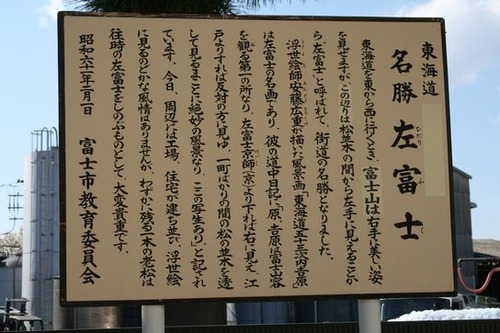 東海道
名勝 左富士
ひだり ふ じ
東海道を東から西に行くとき、富士山は右手に美しい姿
を見せますが、この辺りは松並木の間から左手に見えることか
ら“左富士”と呼ばれて、街道の名勝となりました。
浮世絵師安藤広重が描いた風景画「東海道五十三次内吉原」
は左富士の名画であり、彼の道中日記に「原、吉原は富士山容
を観る第一の所なり、左富士京師(京)より下れば右に見え、江
戸よりすれば反対の方に見ゆ、一町ばかりの間の松の並木を透
して見るまことに絶妙の風景なり、ここの写生あり」と記され
ています。今日、周辺には工場、住宅が建ち並び、浮世絵
に見るのどかな風情はありませんが、わずかに残る一本の老松は
往時の左富士をしのぶものとして、大変貴重です。
昭和六二年二月一日 富士市教育委員会